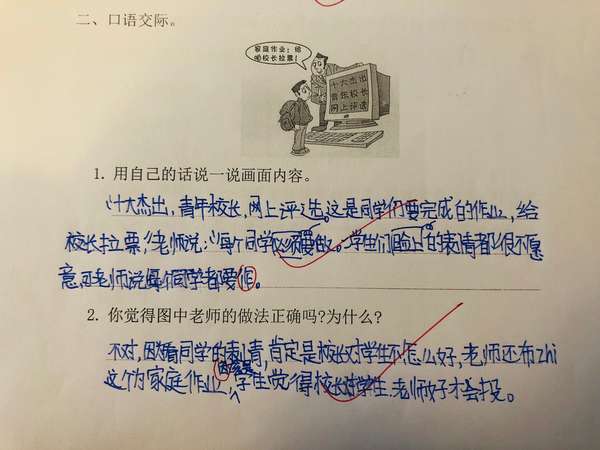 二、口语交际。
家庭作业：给
咱校长拉票！
十大杰出
青年校长
网上评选
1. 用自己的话说一说画面内容。
“十大杰出，青年校长，网上评选。这是同学们要完成的作业，给
校长拉票，”老师说：“每个同学必须要做。”学生们脸上的表情都很不愿
意，可老师说每个同学都要作。
2. 你觉得图中老师的做法正确吗?为什么?
不对，因为看同学的表情，肯定是校长对学生不怎么好，老师还布zhi
这个为家庭作业，学生觉得校长对学生，老师好才会投。